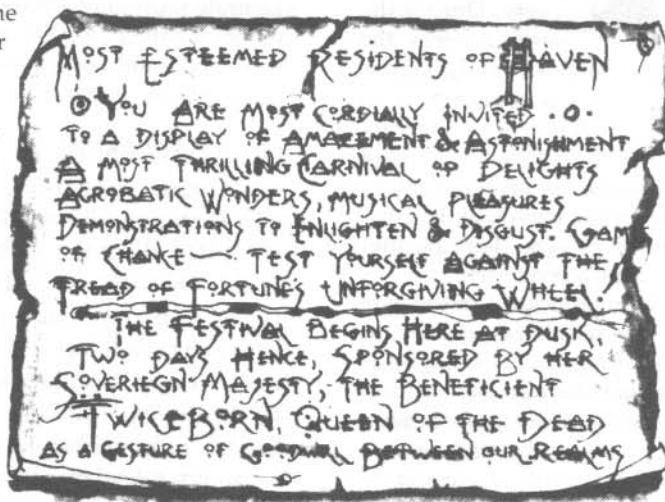 MOST ESTEEMED RESIDENTS OF HAVEN
YOU ARE MOST CORDIALLY INVITED
TO A DISPLAY OF AMAZEMENT & ASTONISHMENT
A MOST THRILLING CARNIVAL OF DELIGHTS
ACROBATIC WONDERS, MUSICAL PLEASURES
DEMONSTRATIONS TO ENLIGHTEN & DISGUST. GAMES
OF CHANCE — TEST YOURSELF AGAINST THE
TREAD OF FORTUNE'S UNFORGIVING WHEEL.
THE FESTIVAL BEGINS HERE AT DUSK,
TWO DAYS HENCE, SPONSORED BY HER
SOVERIEGN MAJESTY, THE BENEFICIENT
TWICEBORN, QUEEN OF THE DEAD
AS A GESTURE OF GOODWILL BETWEEN OUR REALMS